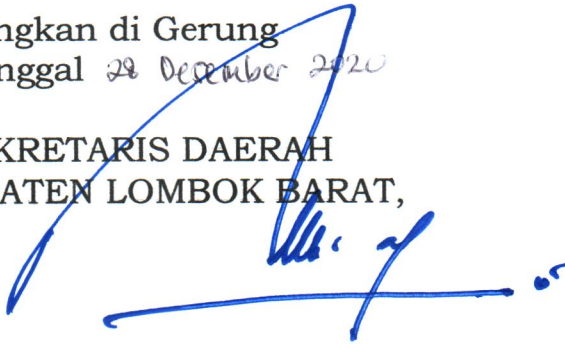 ngkan di Gerung
nggal 28 December 2020
KRETARIS DAERAH
ATEN LOMBOK BARAT,